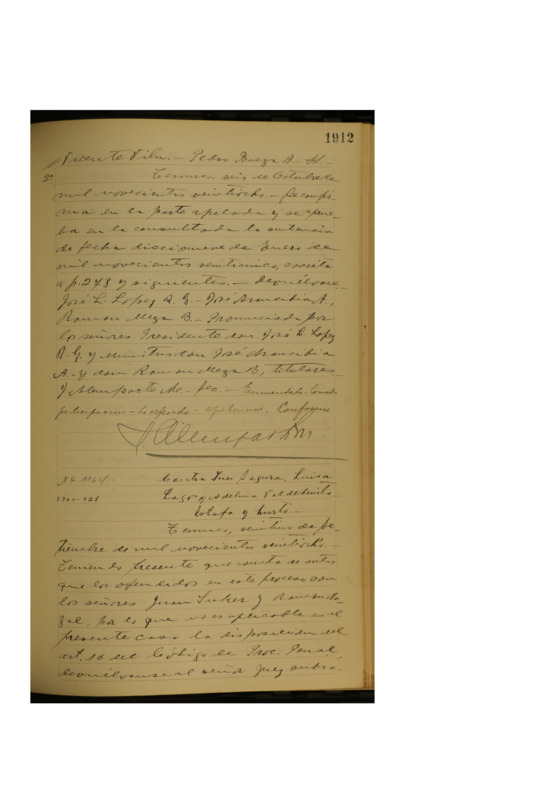 1912
Vicente Vilu. – Pedro Baeza A. – S –
2ª Temuco, seis de Octubre de
mil novecientos veintiocho. – Se confir
ma en la parte apelada y se aprue-
ba en la consultada la sentencia
de fecha diecinueve de Enero de
mil novecientos veintiocho, escrita
a fs. 248 y siguientes. – Devuélvase. –
José L. Lopez R. G. – José Arancibia A.,
Ramon Meza B. – Pronunciada por
los señores Presidente don José L. Lopez
R. G. y Ministros don José Arancibia
A. y don Ramon Meza B, titulares –
J. Alemparte M. – Sec. – Enmendado
Conforme
J. Alemparte M
Nº 1164/. – Contra Luis Segura, Luisa
Lagos y Adelina V. de
Estafa y hurto –
Temuco, veintiuno de Se-
tiembre de mil novecientos veintiocho. –
Teniendo presente que consta de autos
que los ofendidos en este proceso son
los señores Juan y
por lo que no es aplicable en el
presente caso la disposicion del
art. 10 del Código de Proc. Penal,
devuélvanse al señor Juez